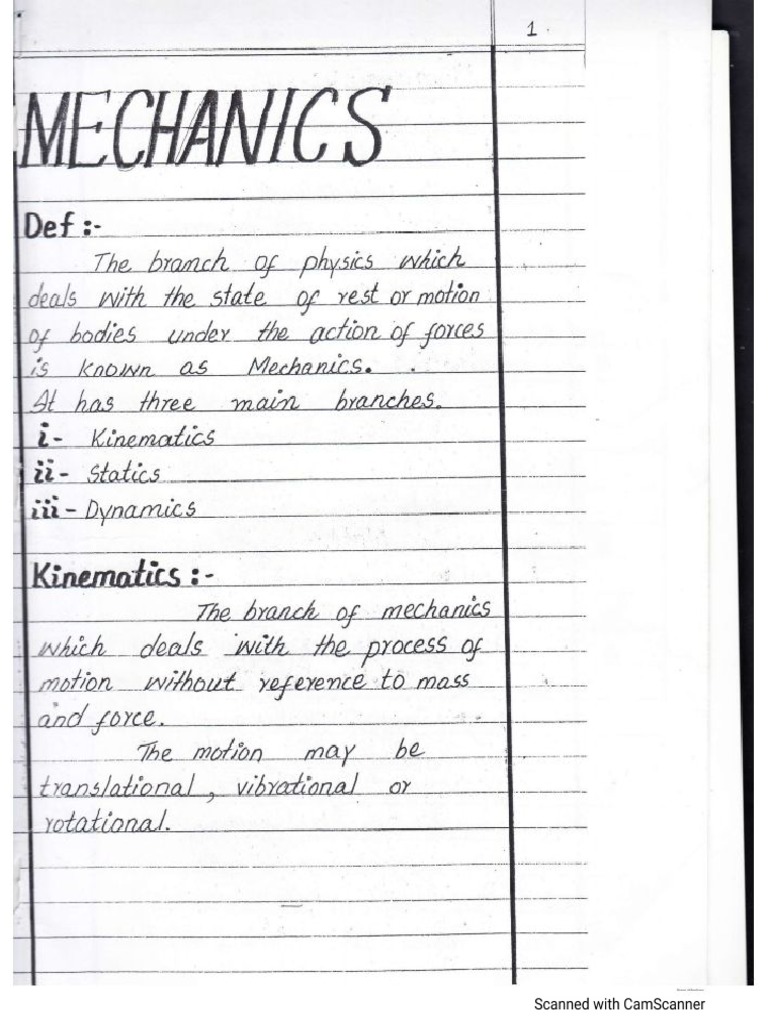 1.
MECHANICS
Def :-
The branch of physics which
deals with the state of rest or motion
of bodies under the action of forces
is known as Mechanics.
It has three main branches.
i- Kinematics
ii- Statics
iii- Dynamics
Kinematics :-
The branch of mechanics
which deals with the process of
motion without reference to mass
and force.
The motion may be
translational, vibrational or
rotational.
Scanned with CamScanner